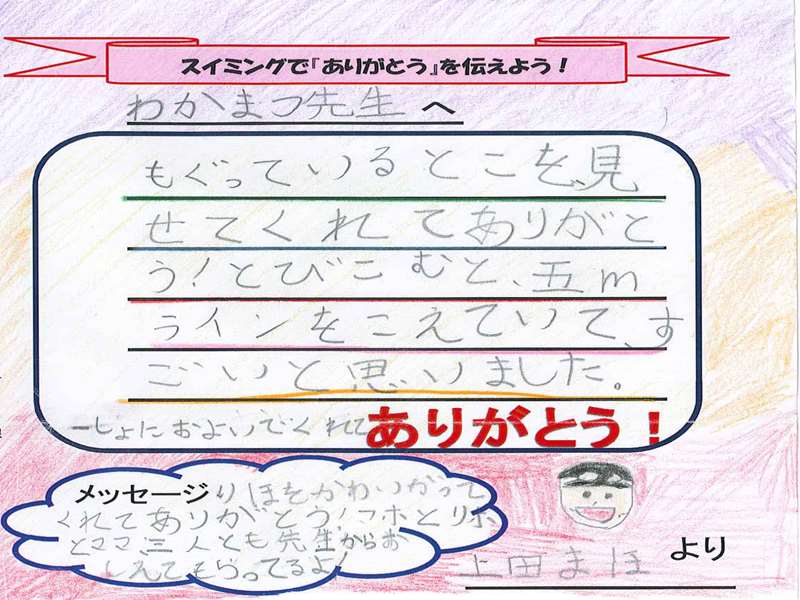 スイミングで『ありがとう』を伝えよう！
わかまつ先生 へ
もぐっているとこを、見
せてくれてありがと
う！とびこむと、五m
ラインをこえていて、す
ごいと思いました。
一しょにおよいでくれて ありがとう！
メッセージ りほをかわいがって
くれてありがとう！マホとリホ
とママ三人とも先生からお
しえてもらってるよ！
上田まほ より